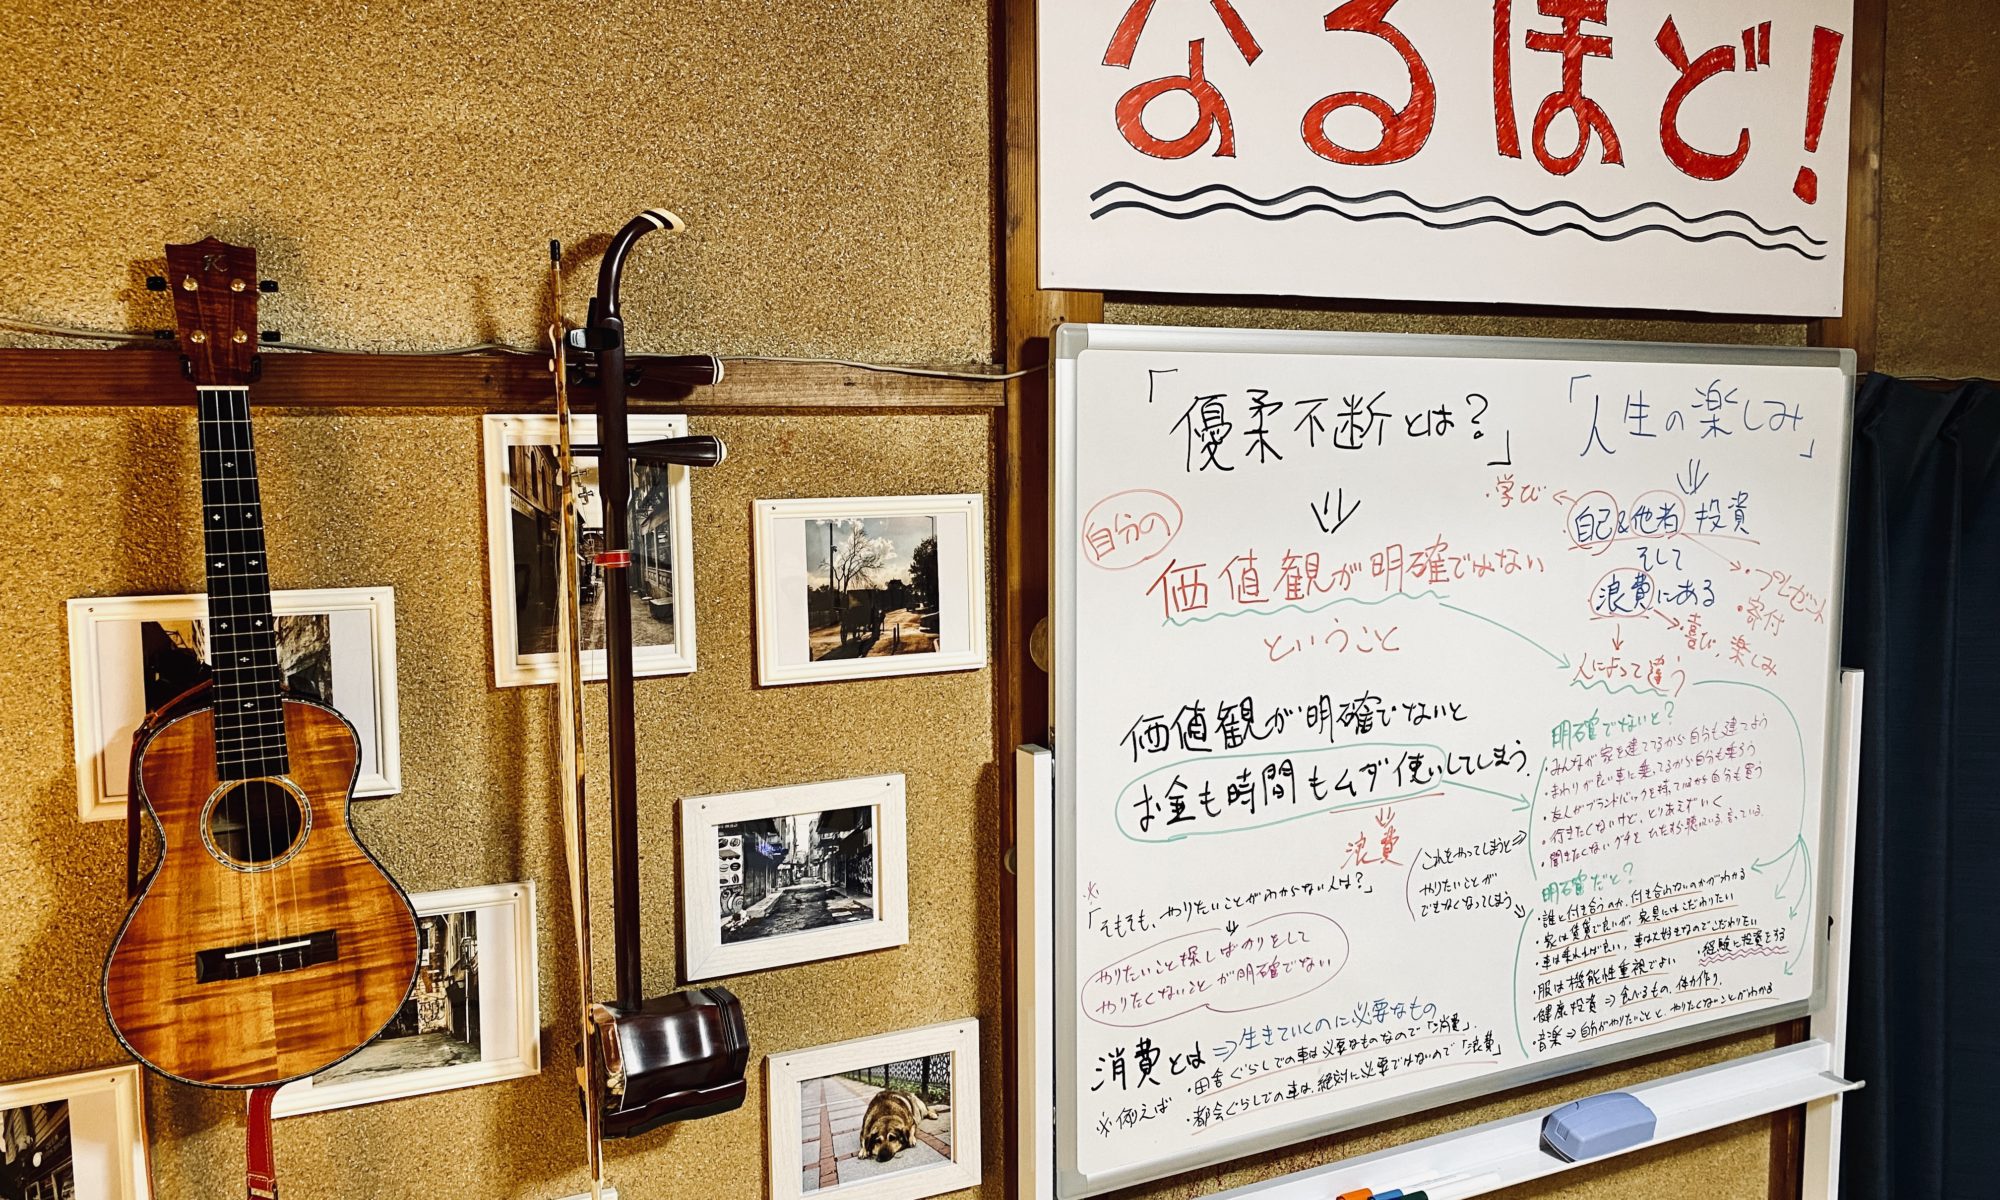 なるほど!
「優柔不断とは?」
⇓
自分の
価値観が明確ではない
ということ
価値観が明確でないと
お金も時間もムダ使いしてしまう。
⇓
浪費
※
「そもそも、やりたいことがわからない人は?」
↓
やりたいこと探しばかりをして
やりたくないことが明確でない
消費とは⇒生きていくのに必要なもの
※例えば
・田舎ぐらしでの車は必要なものなので「消費」.
・都会ぐらしでの車は、絶対に必要ではないので「浪費」
「人生の楽しみ」
⇓
・学び
自己&他者投資
そして
浪費にある
・プレゼント
・寄付
・喜び、楽しみ
人によって違う
明確でないと?
・みんなが家を建ててるから自分も建てよう
・まわりが良い車に乗ってるから自分も乗ろう
・友人がブランドバックを持っているから自分も買う
・行きたくないけど、とりあえずいく
・聞きたくないグチをひたすら聴いている、言っている.
これをやってしまうと⇒
やりたいことが
できなくなってしまう
明確だと?
・誰と付き合うのか、付き合わないのかがわかる
・家は賃貸で良いが、家具にはこだわりたい
・車は乗れれば良い、車は大好きなのでこだわりたい
・服は機能性重視でよい
・経験に投資をする
・健康投資⇒食べるもの、体力作り.
・音楽⇒自分がやりたいことと、やりたくないことがわかる
K